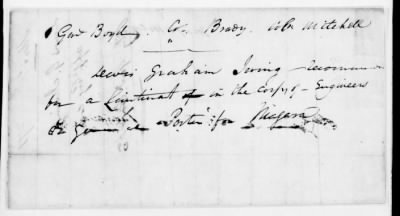 Genl Boyd Col. Brady. Col. Mitchell
Lewis Graham Irving recommen
for a Lieutenant in the Corps of Engineers
Genl Porter for Niagara